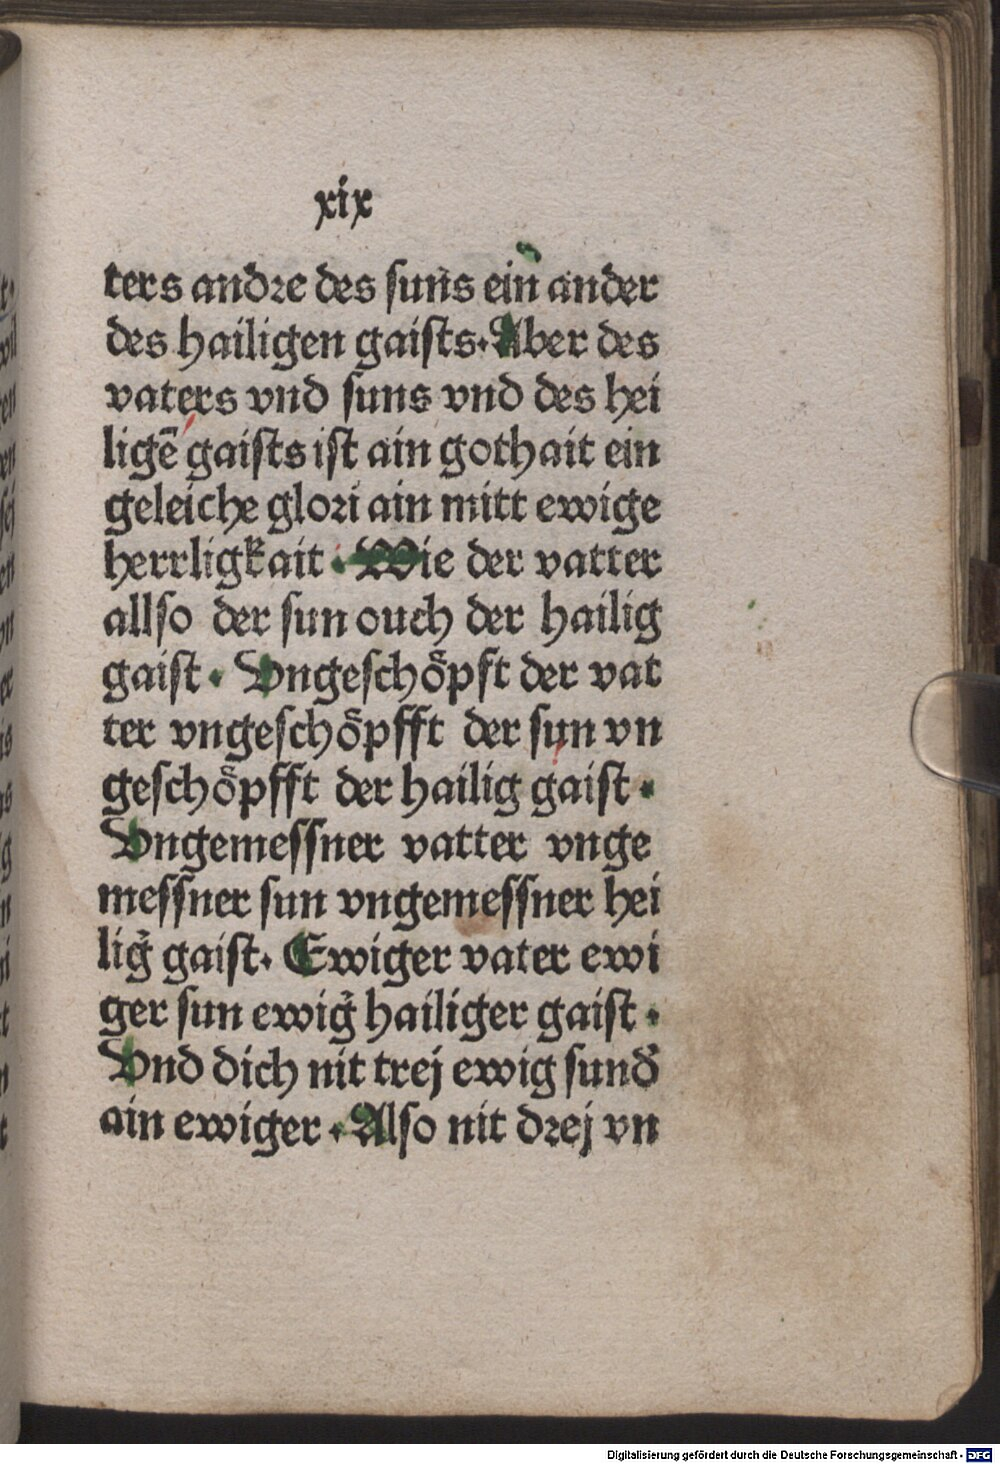 xix
ters andre des suns ein ander
des hailigen gaists. Aber des
vaters vnd suns vnd des hei
ligē gaists ist ain gothait ein
geleiche glori ain mitt ewige
herrligkait. Wie der vatter
allso der sun ouch der hailig
gaist. Vngeschoͤpft der vat
ter vngeschoͤpfft der sun vn
geschoͤpfft der hailig gaist.
Vngemessner vatter vnge
messner sun vngemessner hei
lig̉ gaist. Ewiger vater ewi
ger sun ewig̉ hailiger gaist.
Vnd dich nit trej ewig sund̉
ain ewiger. Also nit drej vn
Digitalisierung gefördert durch die Deutsche Forschungsgemeinschaft - DFG